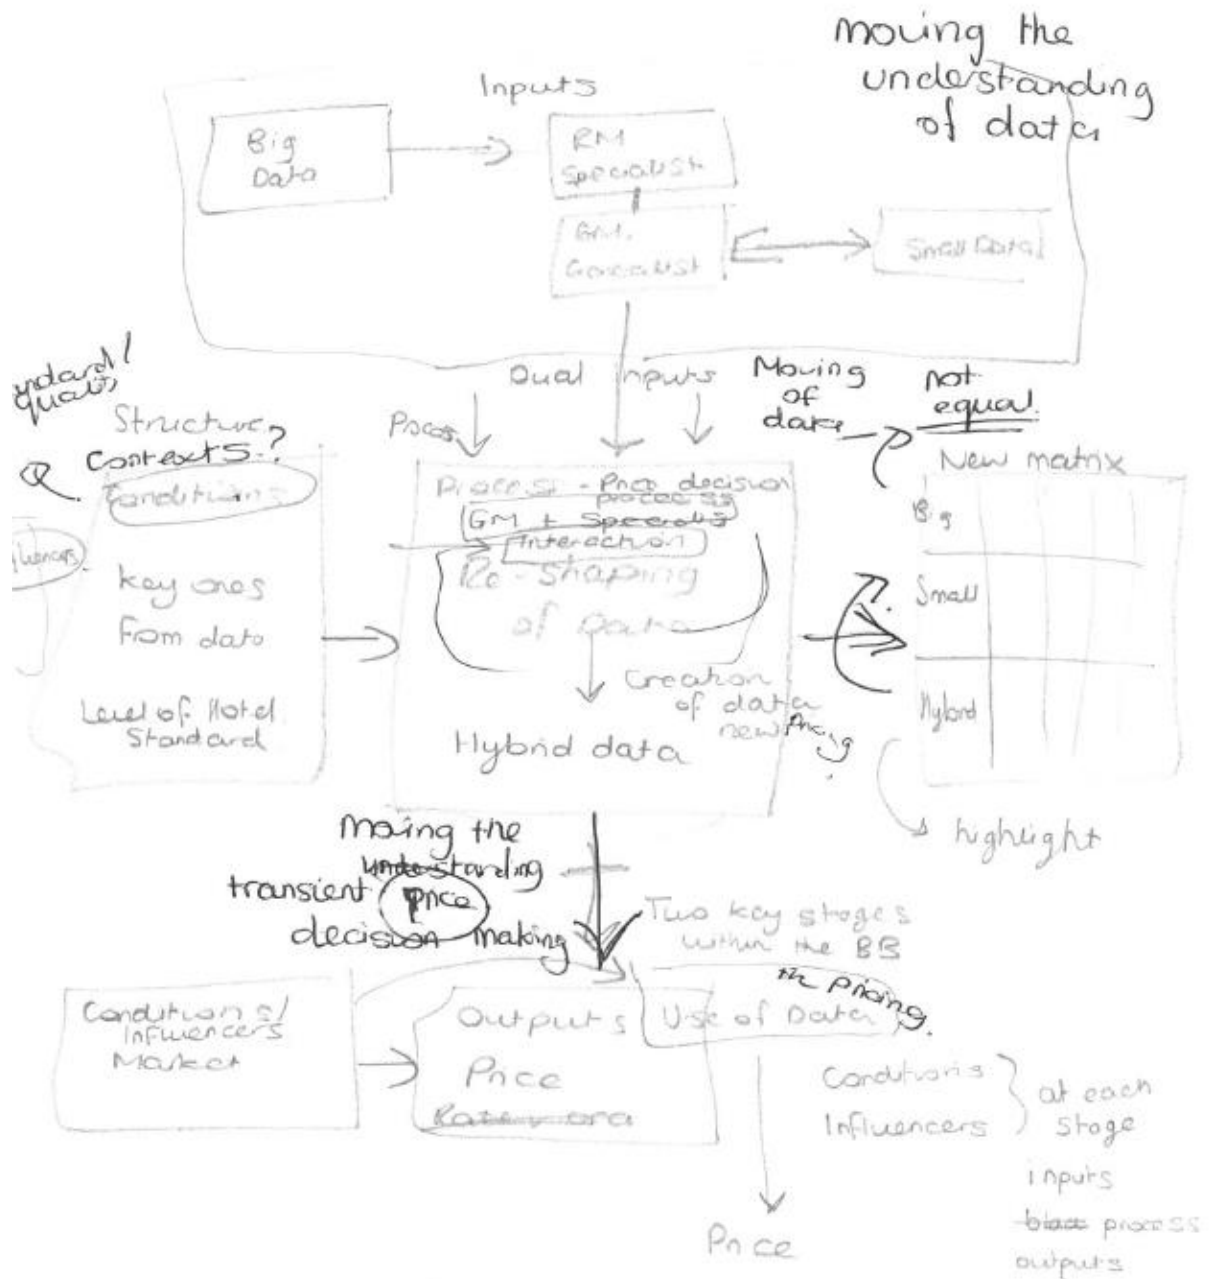 moving the
understanding
of data
Inputs
Big
Data
RM
Specialist
GM.
Generalist
Small Data
Dual Inputs
Moving
of
data
not
equal.
quality
Structure
Contexts?
Conditions
key ones
From data
Level of Hotel
Standard
Process
Process - Price decision
process
GM + Specialist
Interaction
Re-Shaping
of Data
Creation
of data
new Pricing
Hybrid data
New matrix
Big
Small
Hybrid
highlight
Moving the
understanding
transient price
decision making
Two key stages
within the BB
Conditions/
Influencers
Market
Outputs
Price
Use of Data
the pricing.
Conditions
Influencers
at each
stage
inputs
process
outputs
Price